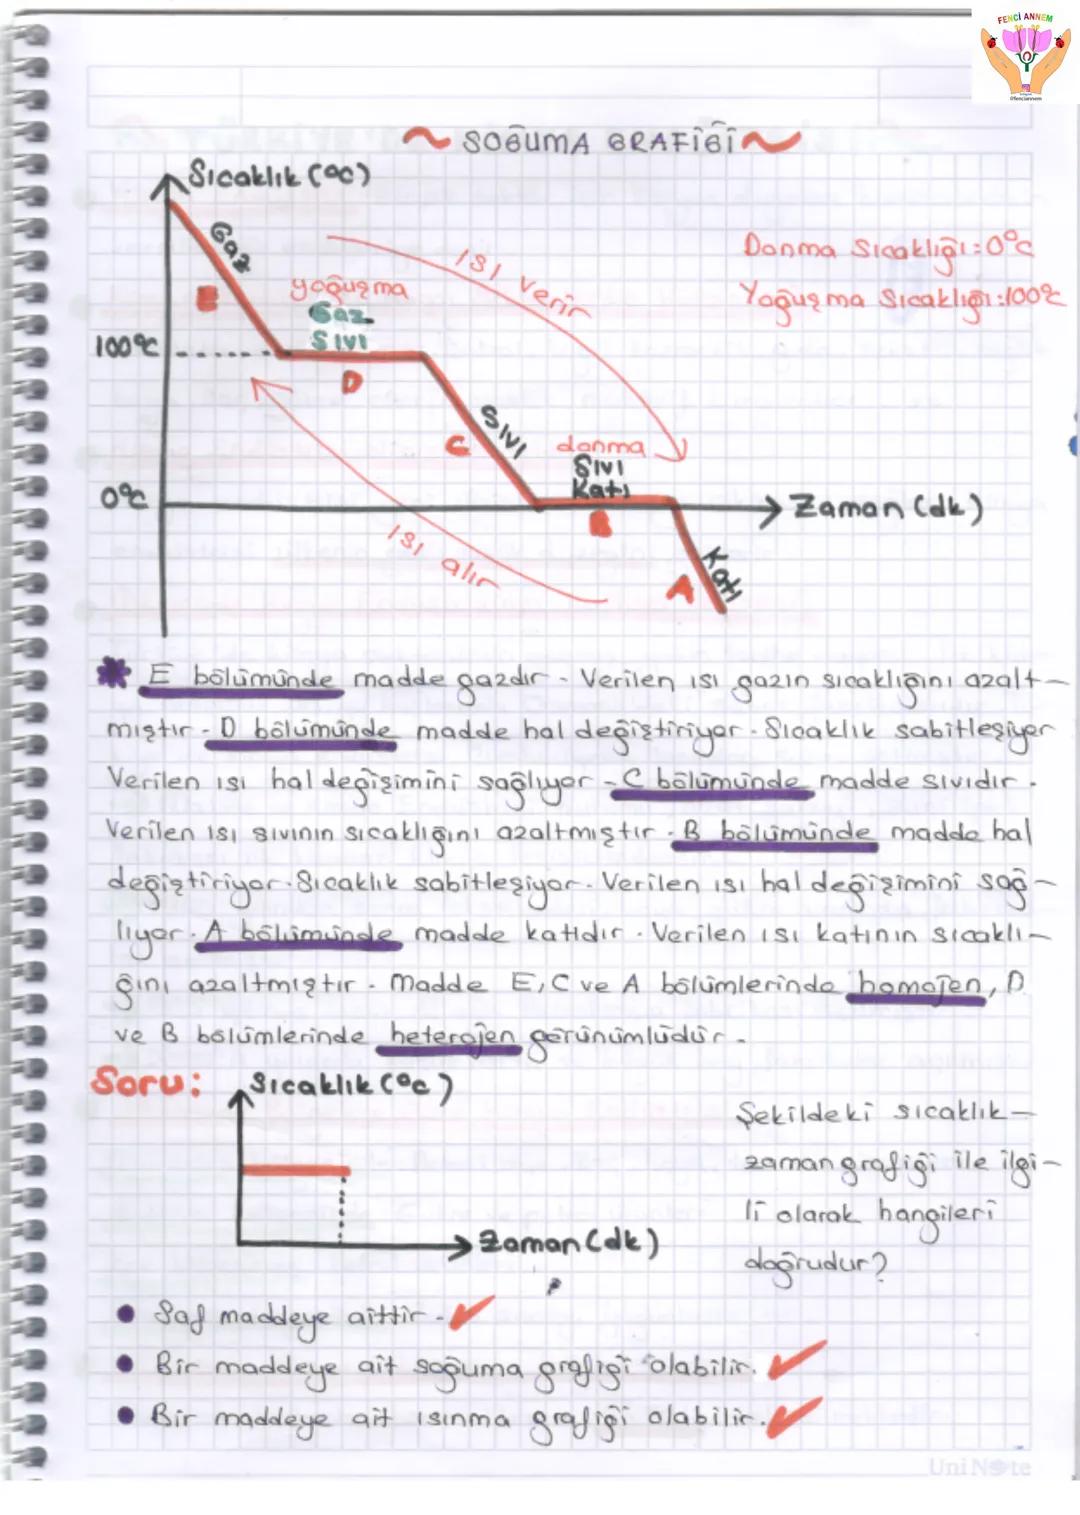 FENCİ ANNEM
@fenciannem
~ SOĞUMA GRAFİĞİ ~
Sıcaklık (°C)
Gaz
E
ısı verir
Donma Sıcaklığı: 0°C
Yoğuşma Sıcaklığı: 100°C
yoğuşma
Gaz
Sıvı
100°C
D
Sıvı
C
donma
Sıvı
Katı
0°C
Zaman (dk)
B
ısı alır
Katı
A
* E bölümünde madde gazdır. Verilen ısı gazın sıcaklığını azalt-
mıştır. D bölümünde madde hal değiştiriyor. Sıcaklık sabitleşiyor
Verilen ısı hal değişimini sağlıyor. C bölümünde madde sıvıdır.
Verilen ısı sıvının sıcaklığını azaltmıştır. B bölümünde madde hal
değiştiriyor. Sıcaklık sabitleşiyor. Verilen ısı hal değişimini sağ-
lıyor. A bölümünde madde katıdır. Verilen ısı katının sıcaklı-
ğını azaltmıştır. Madde E, C ve A bölümlerinde homojen, D
ve B bölümlerinde heterojen görünümlüdür.
Soru:
Sıcaklık (°C)
Zaman (dk)
Şekildeki sıcaklık-
zaman grafiği ile ilgi-
li olarak hangileri
doğrudur?
• Saf maddeye aittir. ✓
• Bir maddeye ait soğuma grafiği olabilir. ✓
• Bir maddeye ait ısınma grafiği olabilir. ✓
UniNote